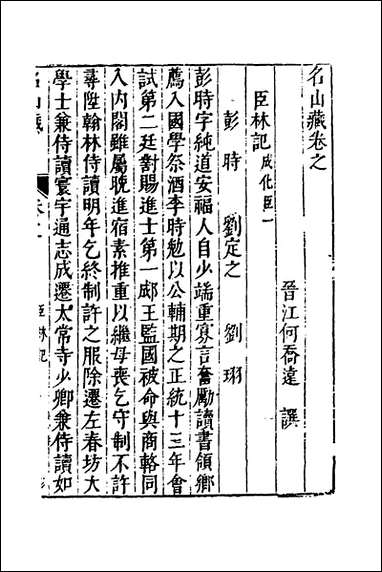 名山藏卷之
晉江何喬遠 譔
臣林記 成化臣一
彭時 劉定之 劉珝
彭時字純道安福人自少端重寡言奮勵讀書領鄉
薦入國學祭酒李時勉以公輔期之正統十三年會
試第二廷對賜進士第一郕王監國被命與商輅同
入內閣雖屬晚進宿素推重以繼母喪乞守制不許
尋陞翰林侍讀明年乞終制許之服除遷左春坊大
學士兼侍讀寰宇通志成遷太常寺少卿兼侍讀如
名山藏 臣林記